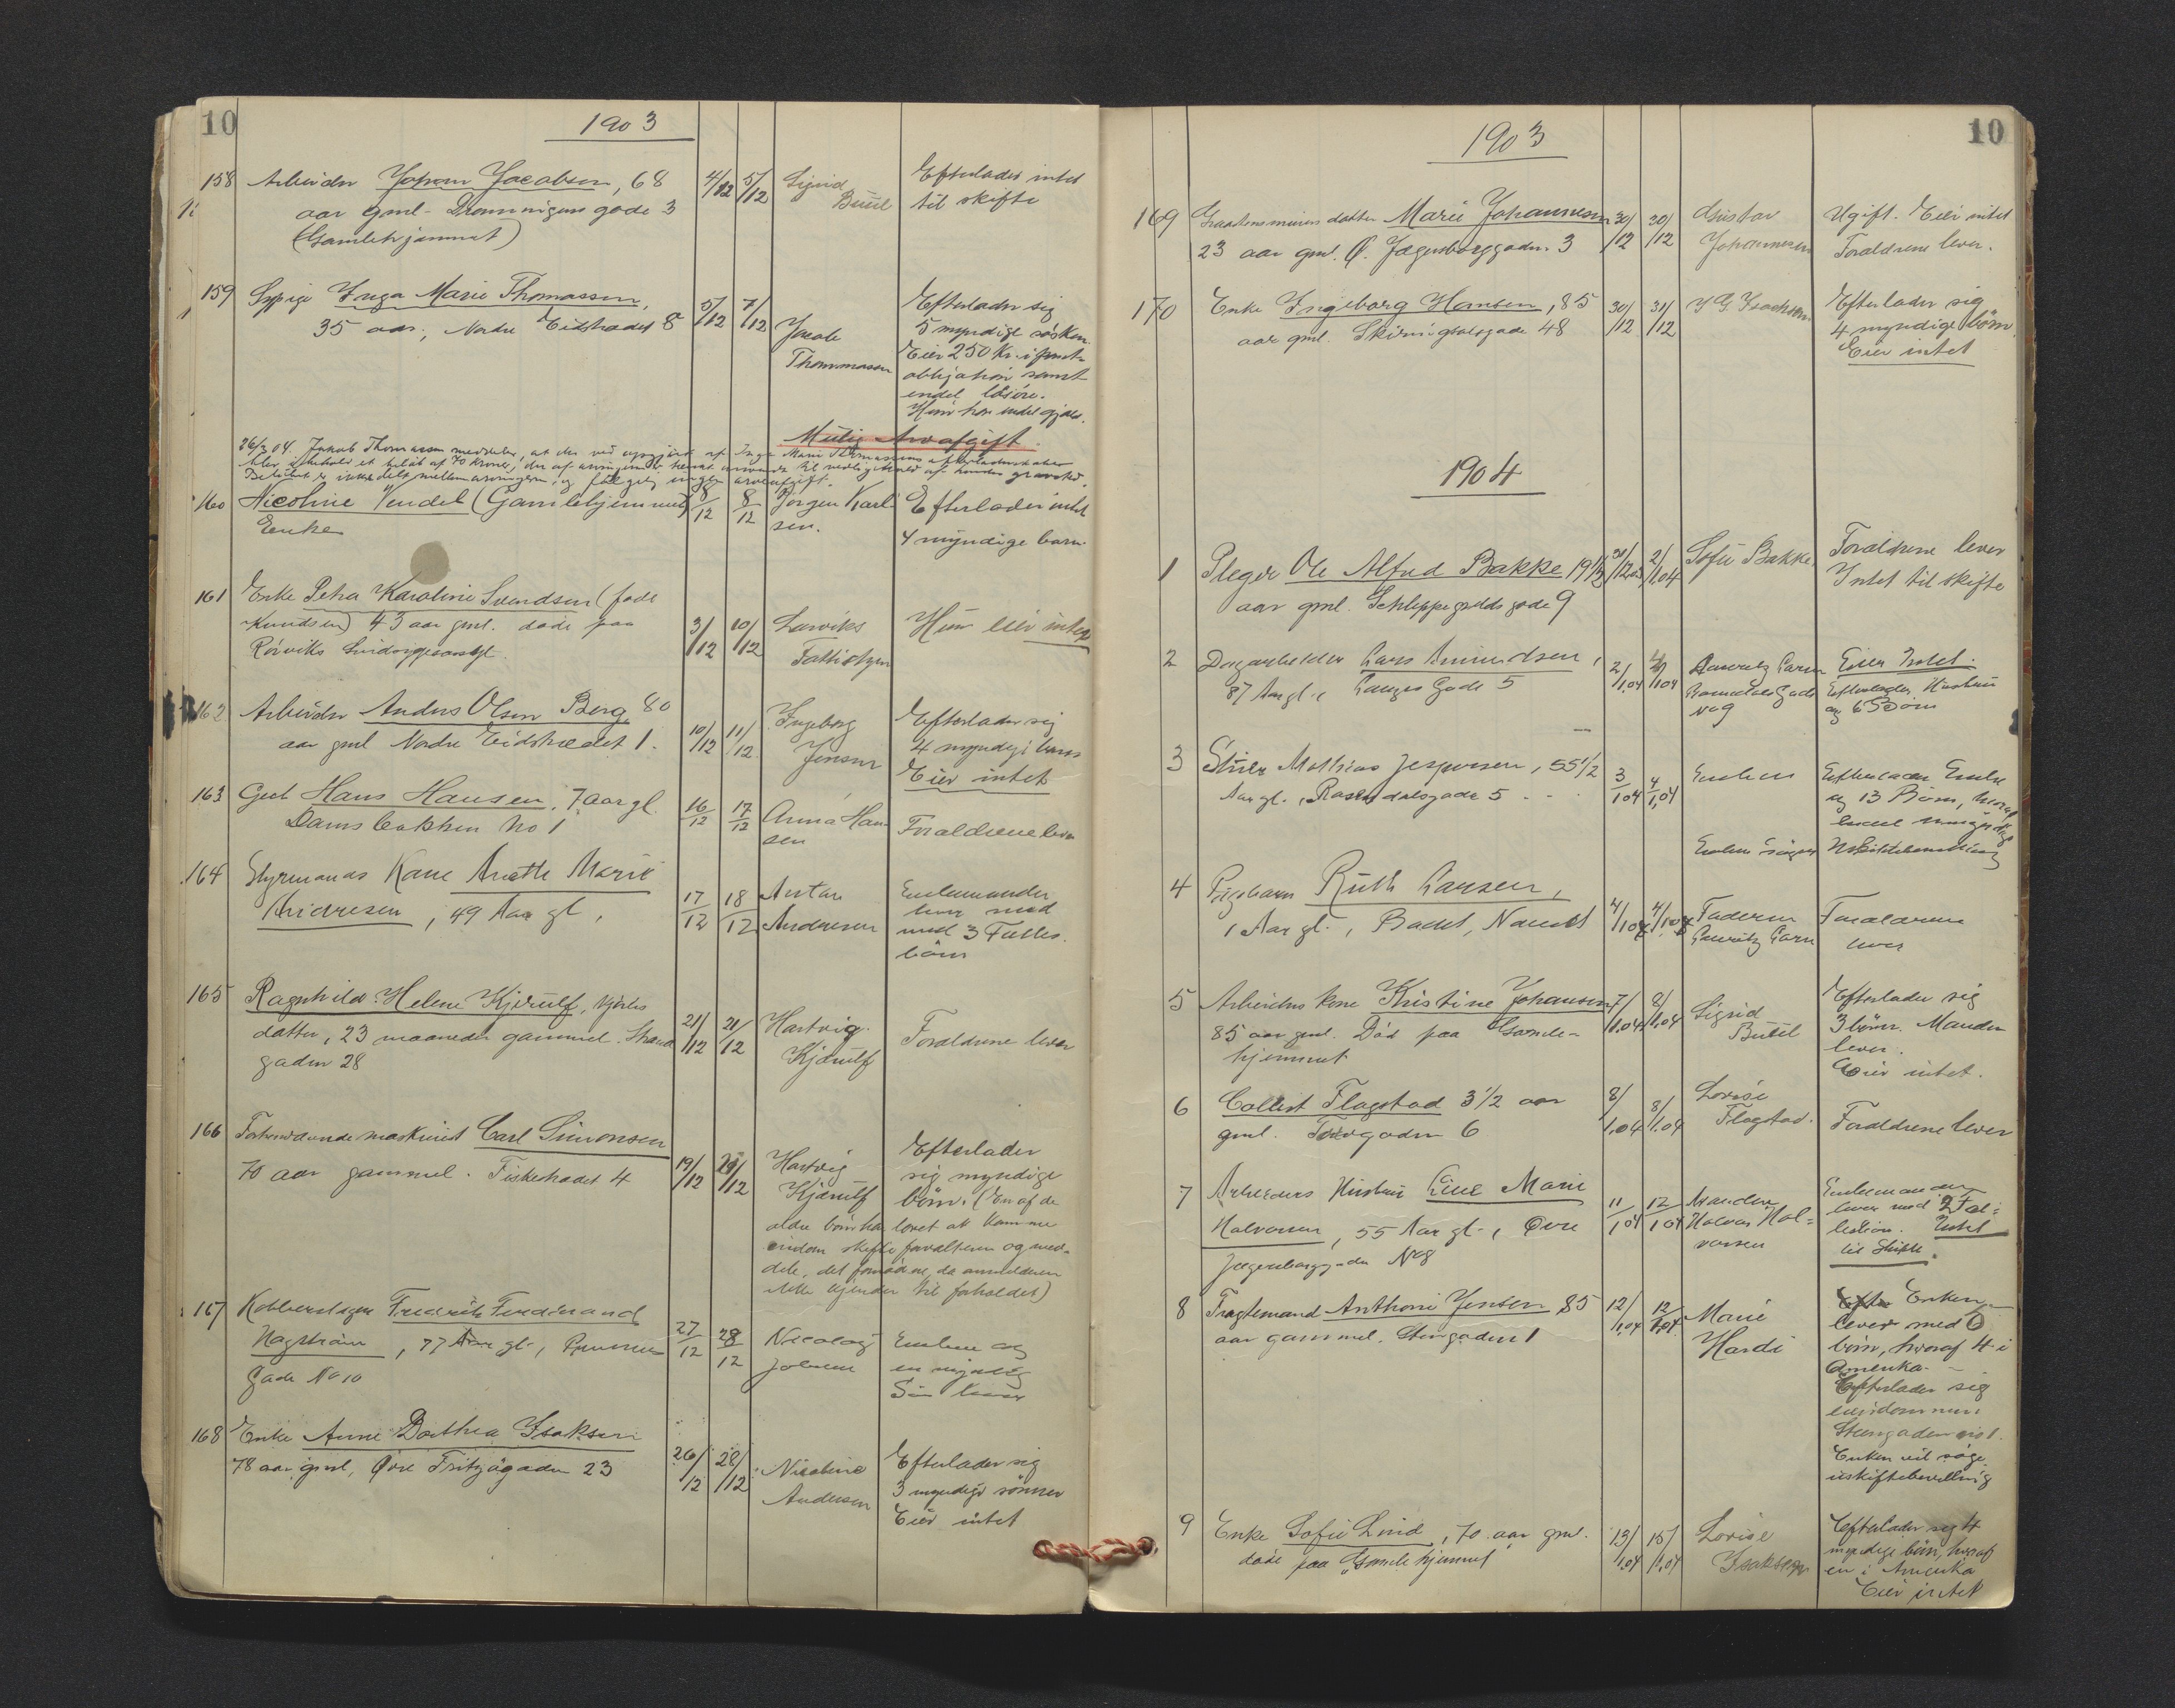 10
1903
158 Arbeider Johan Jacobsen, 68 4/12 5/12 Sigrid Efterlader intet
aar gml. Dronningens gade 3 Buül til skifte
(Gamlehjemmet)
159 Sypige Inga Marie Thomassen, 5/12 7/12 Jacob Efterlader sig
35 aar, Nordre Eidstrædet 8 Thommasen 5 myndige søsken.
Eier 250 Kr. i
obligation samt
endel løsøre.
Hun har endel gjæld.
Mulig Arvafgift.
26/3 04. Jakob Thomassen meddeler, at der ved opgjøret af Inga Marie Thomassens efterladenskaber
blev i behold et beløb af 70 kroner, der af arvingerne er bestemt anvendt til vedligehold af hendes gravsted.
Beløbet er ikke delt mellem arvingerne, og følgelig ingen arveafgift.
160 Nicoline Vendel (Gamlehjemmet) 8/12 8/12 Jørgen Karl- Efterlader intet
Enke sen. 4 myndige barn.
161 Enke Petra Karoline Svendsen (født
Knudsen) 43 aar gml. døde paa 3/12 10/12 Larviks Hun eier intet
Rørviks Sindsygeasyl. Fattistyre
162 Arbeider Anders Olsen Berg, 80 10/12 11/12 Ingeborg Efterlader sig
aar gml Nordre Eidstrædet 1. Jensen 4 myndige barn
Eier intet
163 Gut Hans Hansen, 7 aar gl. 16/12 17/12 Anna Han- Forældrene lever
Damsbakken No 1 sen
164 Styrmands Kone Anette Marie 17/12 18/12 Anton Enkemanden
Andresen, 49 Aar gl, Andresen lever med
med 3 Fælles
börn
165 Ragnhild Helene Kjerulf,
datter, 23 maaneder gammel. Strand 21/12 21/12 Hartvig Forældrene lever
gaden 28 Kjærulf
166 Forhenværende maskinist Carl Simonsen 19/12 21/12 Hartvig Efterlader
70 aar gammel. Fiskestrædet 4 Kjærulf sig myndige
børn. (En af de
ældre børn har lovet at komme
indom skifteforvalteren og med-
dele, det fornødne, da anmelderen
ikke kjender til forholdet)
167 Kobberslager Fredrik Ferdinand
Hagstrøm, 77 Aar gl., 27/12 28/12 Nicolay Enken og
Gade No 10 Johnsen en myndig
Søn lever
168 Enke Anne Dorthea Isaksen 26/12 28/12 Nicoline Efterlader sig
78 aar gml, Øvre Fritzøgaden 23 Andersen 3 myndige sønner
Eier intet
10
1903
169 datter Marie Johannesen 30/12 30/12 Gustav Ugift. Eier intet
23 aar gml. Ø. Jegersborggaden. 3 Johannesen Forældrene lever.
170 Enke Ingeborg Hansen, 85 30/12 31/12 Efterlader sig
aar gml. Skiringsalsgade 48 4 myndige børn
Eier intet
1904
1 Pleger Ole Alfred Bakke 19 1/2 30/12.03 2/1.04 Sofie Bakke Forældrene lever
aar gml. Schleppegrelds gade 9 Intet til skifte
2 Dagarbeider Lars Amundsen, 2/1.04 4/1.04 Lauritz Larsen Eier Intet.
87 Aar gl., Langes Gade 5 Gade Efterlader Hustru
No 9 og 6 Børn
3 Mathias Jespersen, 55 1/2 3/1.04 4/1.04 Enken Efterlader Enke
Aar gl., Rosendalsgade 5 og 13 Børn, hvoraf
Enken søger Uskiftebevilling
4 Pigebarn Ruth Larsen, 4/1.04 4/1.04 Faderen Forældrene
1 Aar gl., Lauritz Larsen lever
5 Arbeiders kone Kristine Johansen 7/1.04 8/1.04 Sigrid Efterlader sig
85 aar gml. Død paa Gamle- Buül 3 børn. Manden
hjemmet lever.
Eier intet.
6 Collert Flagstad 3 1/2 aar 8/1.04 8/1.04 Lovise Forældrene lever
gml. Torvgaden 6 Flagstad.
7 Arbeiders Hustru Line Marie 11/1.04 12/1.04 Manden Enkemanden
Halvorsen, 55 Aar gl., Øvre Halvor Hal- lever med 2 Fæl-
Jegersborggaden No 8 vorsen lesbørn. Intet
til Skifte.
8 Fragtemand Anthoni Jensen, 85 12/1.04 12/1.04 Marie Enken
aar gammel. Stengaden 1 Hardi lever med 6
børn, hvoraf 4 i
Amerika.
Efterlader sig
eiendommen
Steengaden no 1.
Enken vil søge
uskiftebevilling
9 Enke Sofie Lind, 70 aar gml. 13/1.04 15/1.04 Lovise Efterlader sig 4
døde paa Gamlehjemmet Isaksen myndige børn, hvoraf
en i Amerika
Eier intet